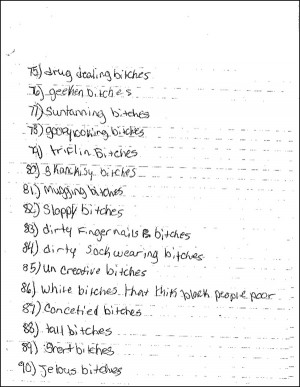 75) drug dealing bitches
76) geeken bitches
77) Suntanning bitches
78) bitches
79) triflin bitches
80) Skanckisy bitches
81) Mugging bitches
82) Sloppy bitches
83) dirty finger nails B bitches
84) dirty Sock wearing bitches
85) un creative bitches
86) white bitches that think black people poor
87) Concetied bitches
88) tall bitches
89) Short bitches
90) Jelous bitches